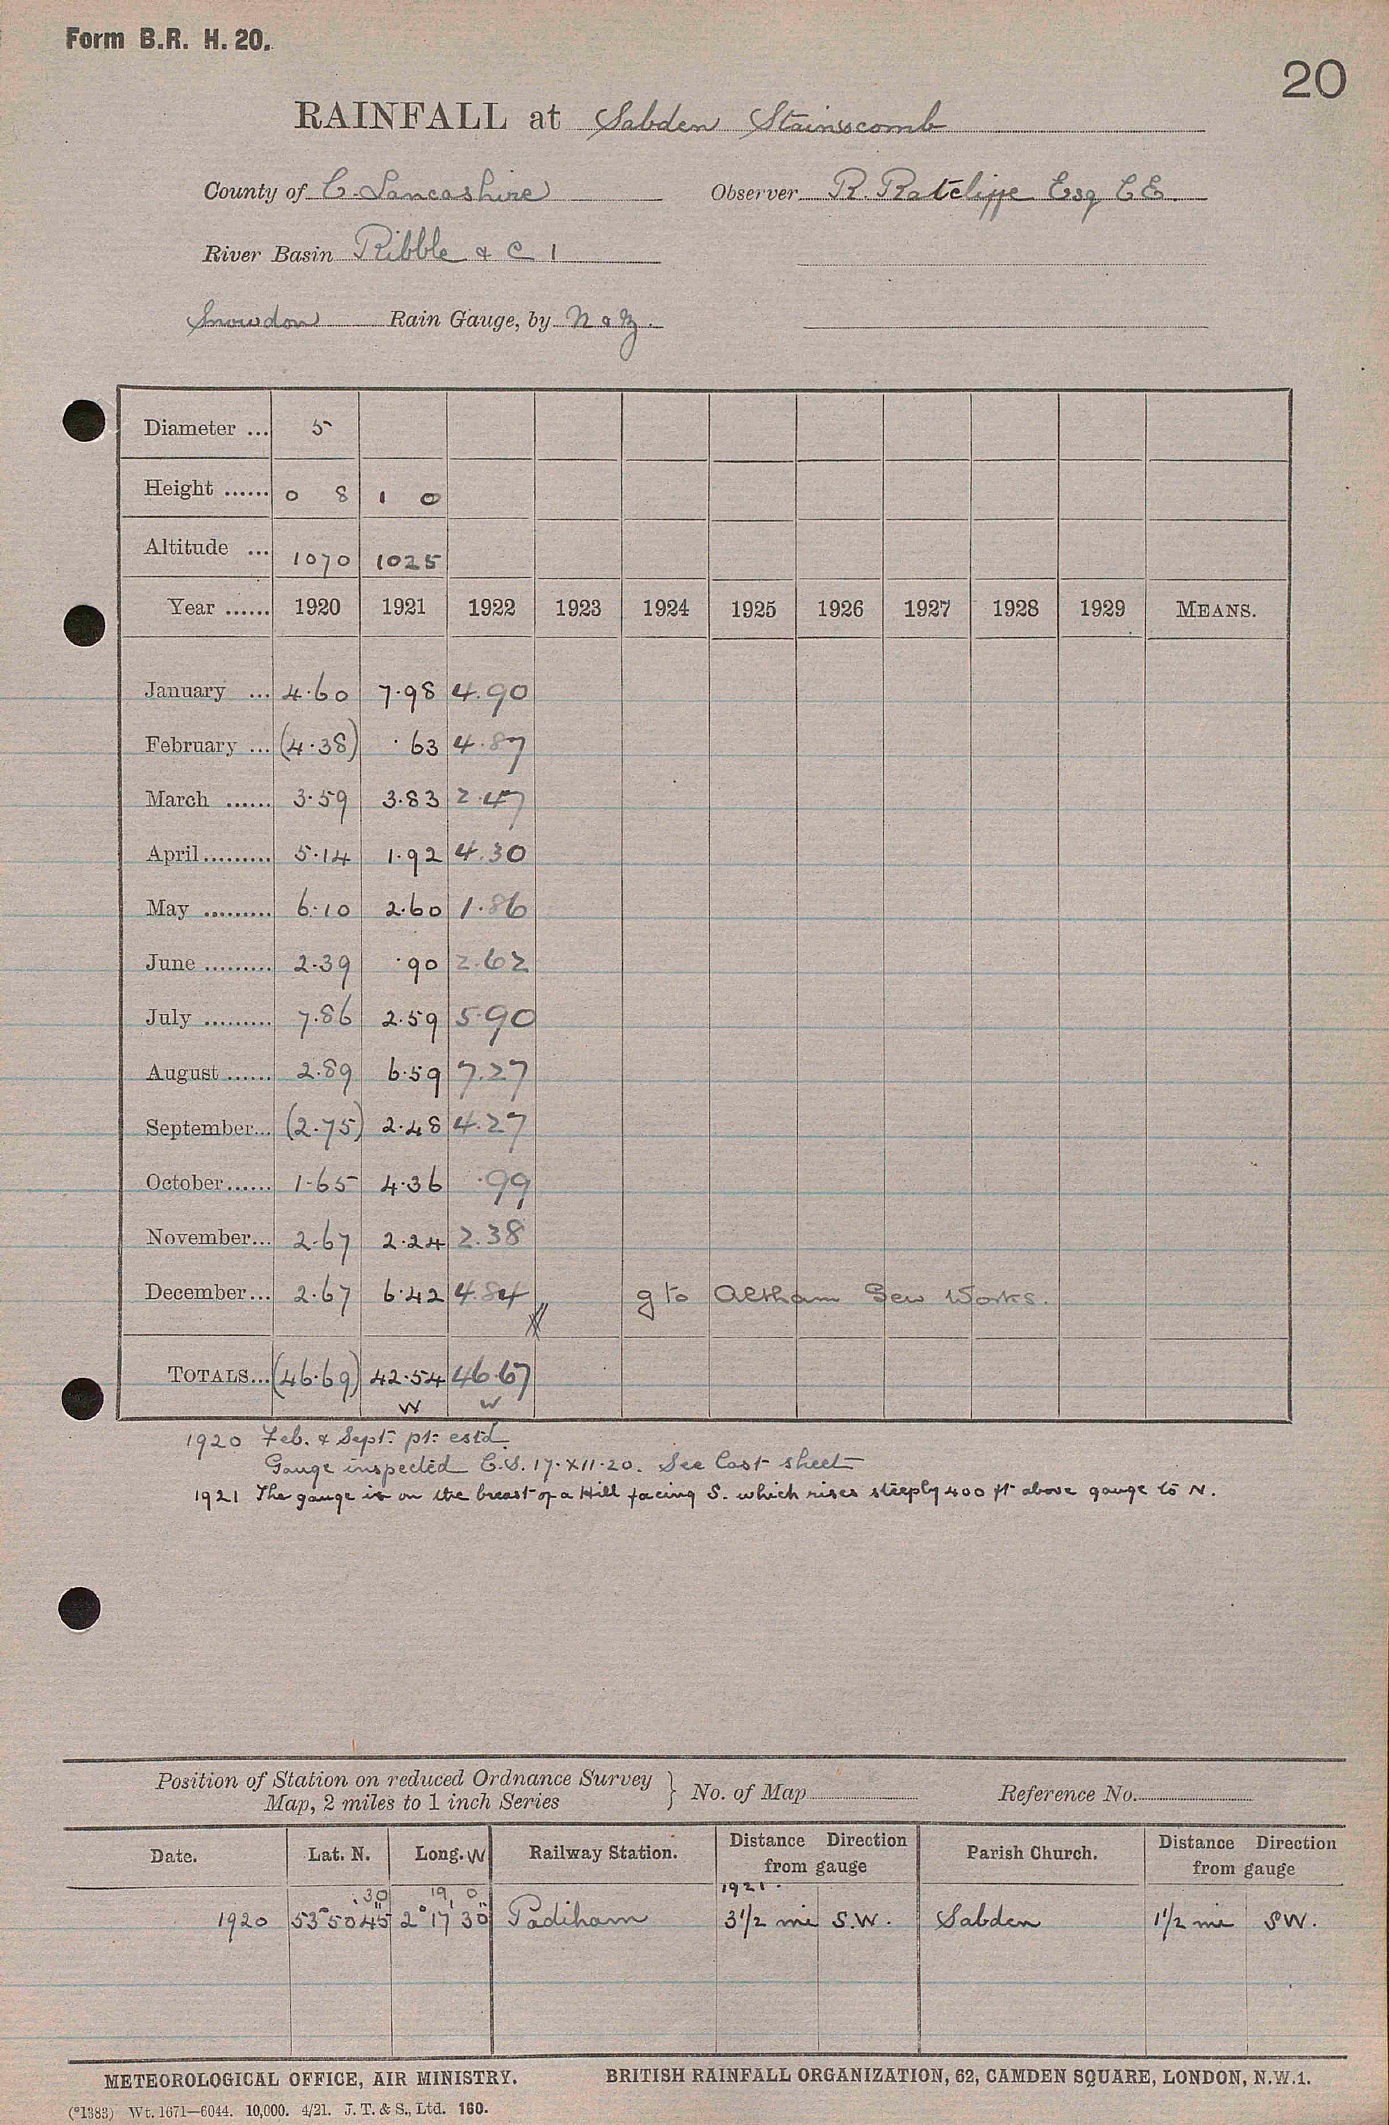 Form B.R. H. 20.
20
RAINFALL at Sabden Stainscomb
County of C. Lancashire Observer R. Ratcliffe Esq C E.
River Basin Ribble & C 1
Snowdon Rain Gauge, by N & Z.
Diameter ... 5
Height ...... 0 8 1 0
Altitude ... 1070 1025
Year ...... 1920 1921 1922 1923 1924 1925 1926 1927 1928 1929 MEANS.
January ... 4.60 7.98 4.90
February ... (4.38) .63 4.87
March ...... 3.59 3.83 2.47
April ......... 5.14 1.92 4.30
May ......... 6.10 2.60 1.86
June ......... 2.39 .90 2.62
July ......... 7.86 2.59 5.90
August ...... 2.89 6.59 7.27
September... (2.75) 2.48 4.27
October ...... 1.65 4.36 .99
November... 2.67 2.24 2.38
December... 2.67 6.42 4.84 g to Altham Sew Works.
TOTALS... (46.69) 42.54 46.67
W W
1920 Feb. & Sept. pt. estd.
Gauge inspected C.S. 17.XII.20. See last sheet
1921 The gauge is on the breast of a Hill facing S. which rises steeply 400 ft above gauge to N.
Position of Station on reduced Ordnance Survey
Map, 2 miles to 1 inch Series } No. of Map Reference No.
Date. Lat. N. Long. W Railway Station. Distance Direction from gauge Parish Church. Distance Direction from gauge
30 19 0 1921.
1920 53° 50 45" 2° 17' 30" Padiham 3 1/2 mi S.W. Sabden 1 1/2 mi SW.
METEOROLOGICAL OFFICE, AIR MINISTRY. BRITISH RAINFALL ORGANIZATION, 62, CAMDEN SQUARE, LONDON, N.W.1.
(*1383) Wt. 1671—6044. 10,000. 4/21. J. T. & S., Ltd. 160.